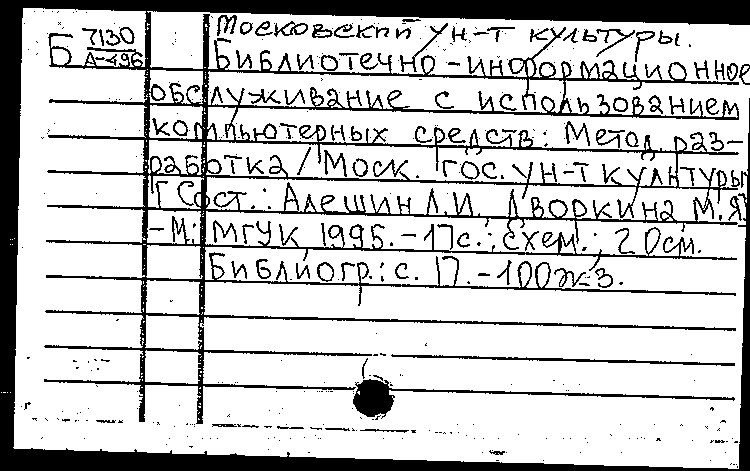 Московский ун-т культуры.
Б 7130
А-496
Библиотечно-информационное
обслуживание с использованием
компьютерных средств: Метод. раз-
работка / Моск. гос. ун-т культуры
[Сост.: Алешин Л.И., Дворкина М.Я.
-М.: МГУК, 1995.-17с.: схем.; 20см.
Библиогр.: с. 17.-100экз.